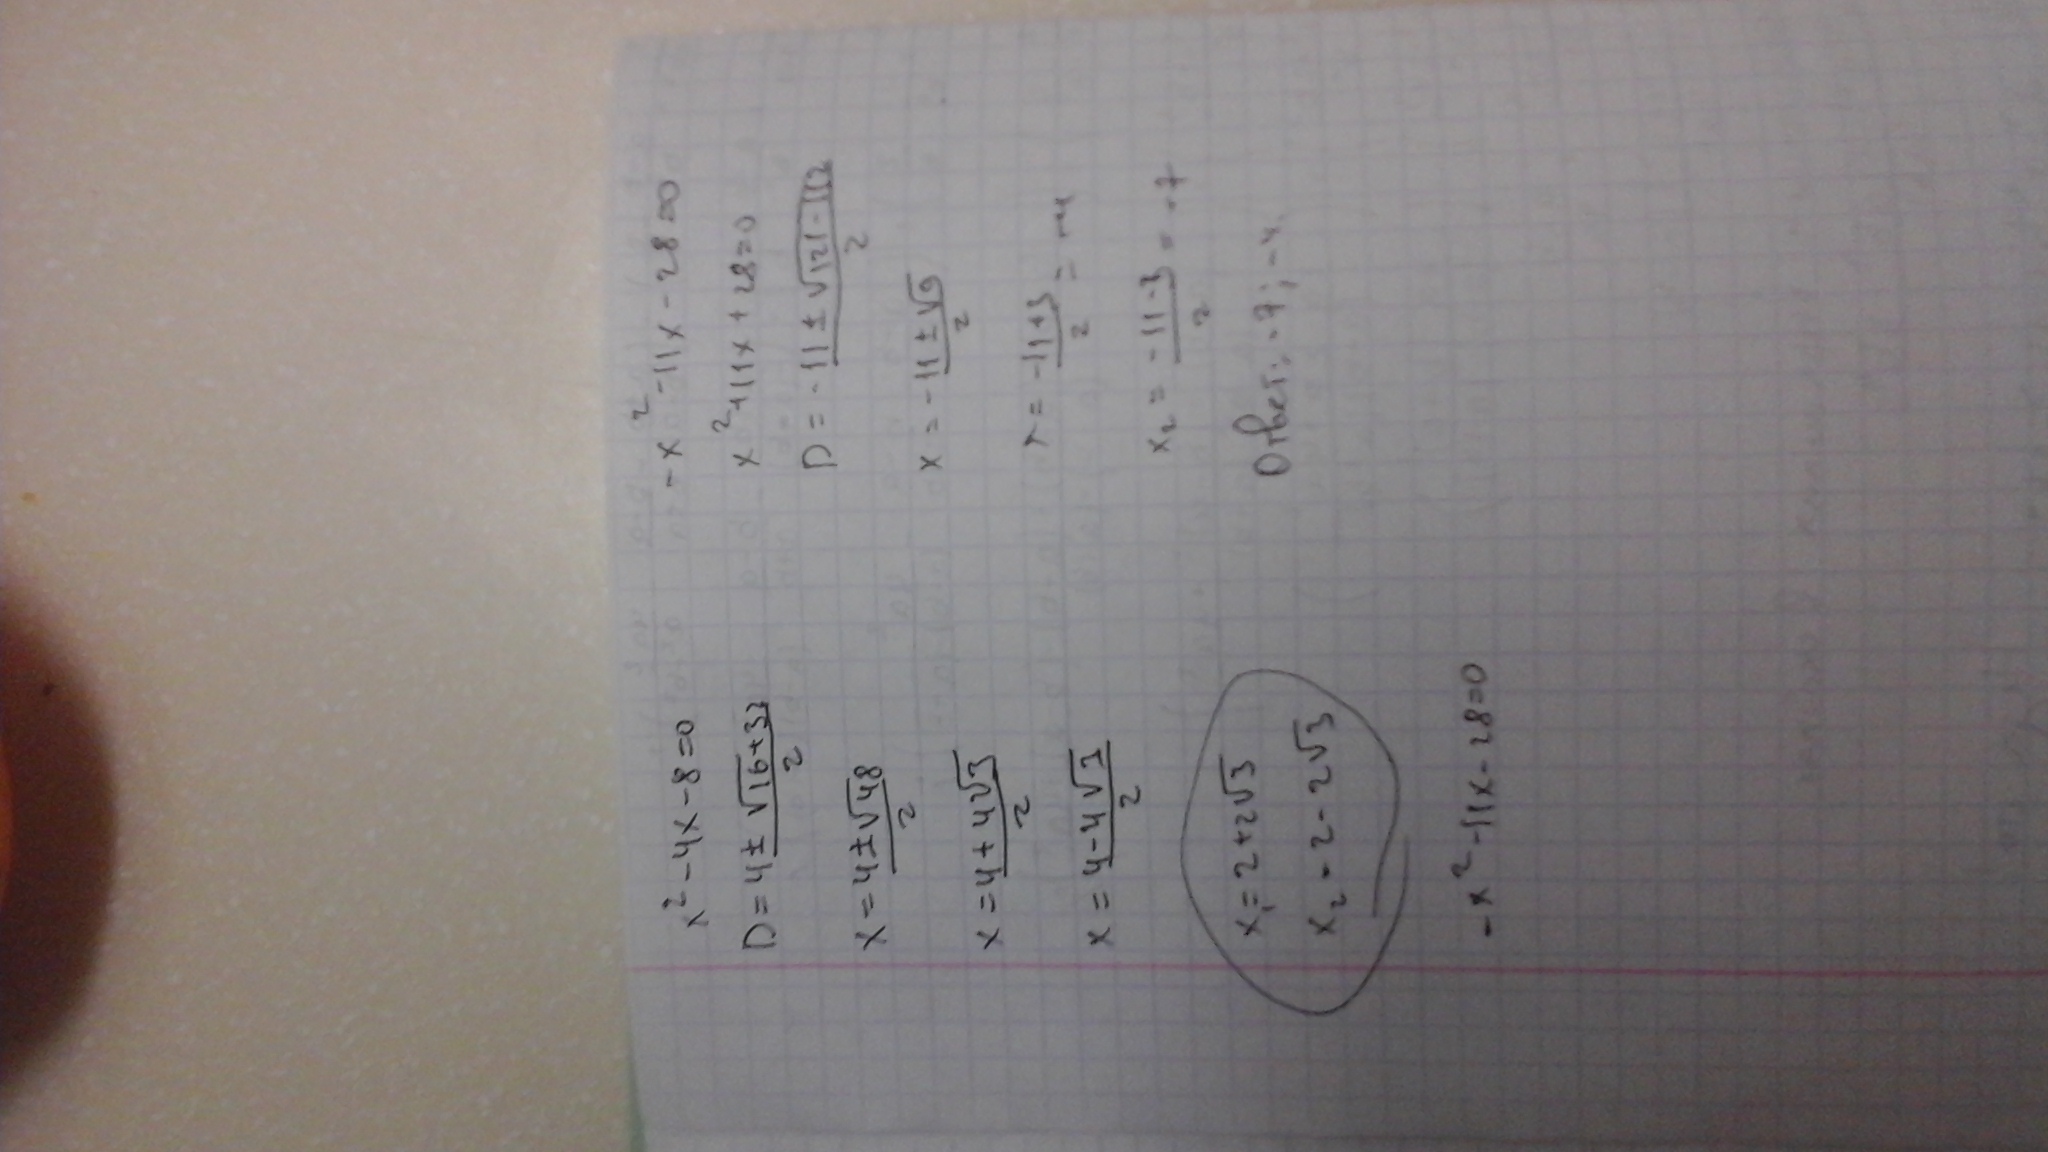 x² - 4x - 8 = 0
D = 4 ± √16+32 / 2
x = 4 ± √48 / 2
x = 4 + 4√3 / 2
x = 4 - 4√3 / 2
x₁ = 2 + 2√3
x₂ - 2 - 2√3
- x² - 11x - 28 = 0
- x² - 11x - 28 = 0
x² + 11x + 28 = 0
D = -11 ± √121 - 112 / 2
x = -11 ± √9 / 2
x = -11+3 / 2 = -4
x₂ = -11-3 / 2 = -7
Ответ: -7; -4.